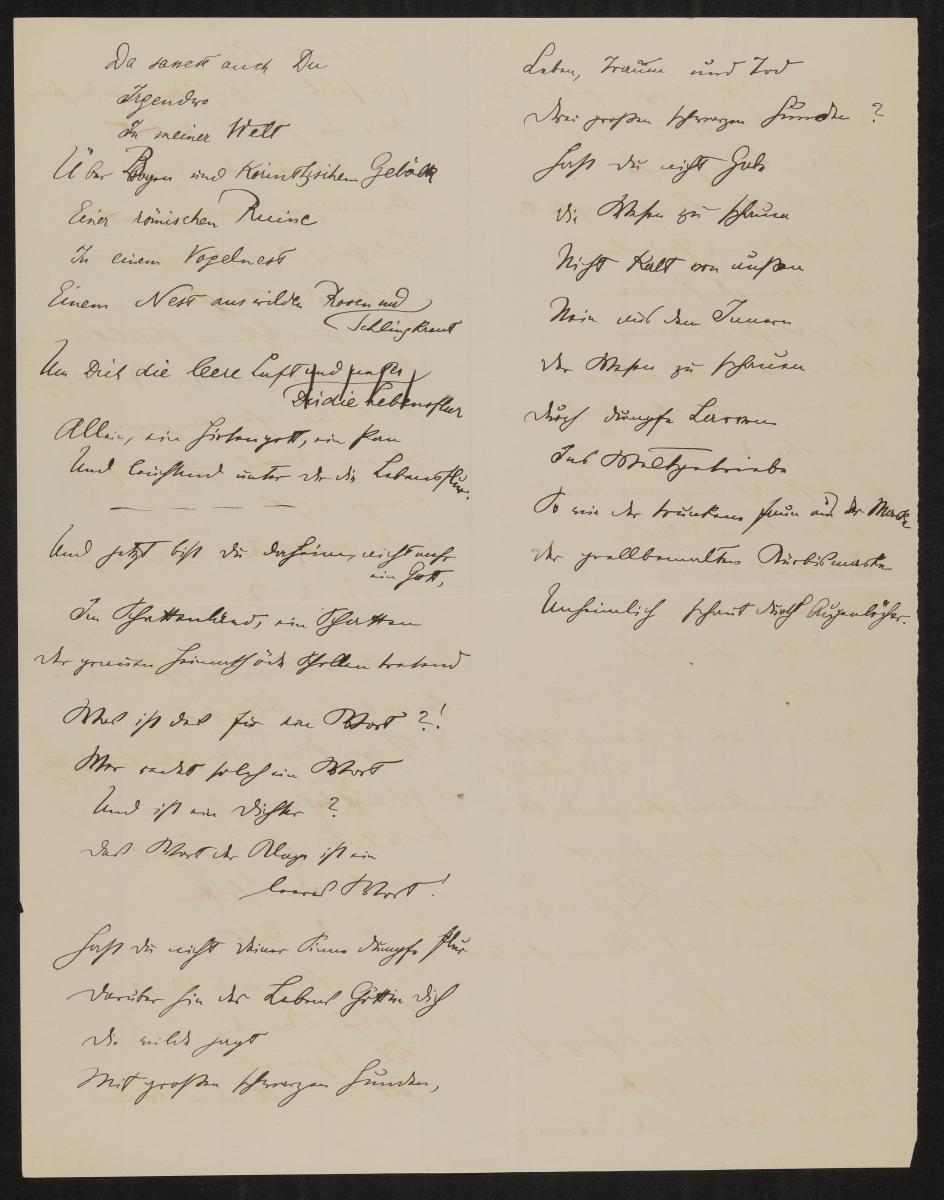 Da sassest auch Du
Irgendwo
In meiner Welt
Über Bogen und Korinthischem Gebälk
Einer römischen Ruine
In einem Vogelnest
Einem Nest aus wilden Rosen und
Schlingkraut
Um Dich die leere Luft und unter
Dir die Lebensflur
Allein, ein Hirtengott, ein Pan
Und leuchtend unter dir die Lebensflur.
Und jetzt bist du daheim, nicht mehr
ein Gott,
Im Schattenland, ein Schatten
der grauen Heimath öde Schollen tretend
Was ist das für ein Wort?!
Wer redet solch ein Wort
Und ist ein Dichter?
Das Wort der Klage ist ein
leeres Wort!
Hast du nicht deiner Sinne dumpfe Flur
Darüber hin des Lebens Göttin dich
die wilde jagt
Mit großen schwarzen Hunden,
Leben, Traum und Tod
Drei großen schwarzen Hunden?
Hast du nicht Gabe
die Wesen zu schauen
Nicht kalt von außen
Nein aus dem Innern
der Wesen zu schauen
durch dumpfe Larven
Ins Weltgetriebe
So wie der trunkene Faun aus der Maske
der grellbemalten Kürbismaske
Unheimlich schaut durch Augenlöcher.